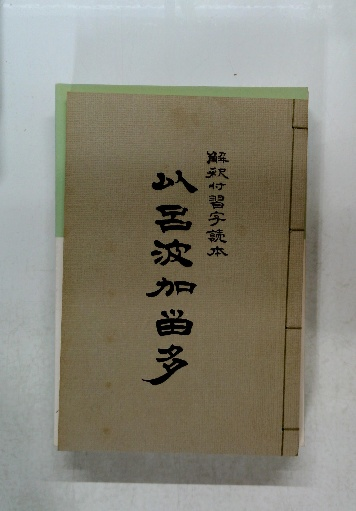 解釈付習字読本
以呂波加留多